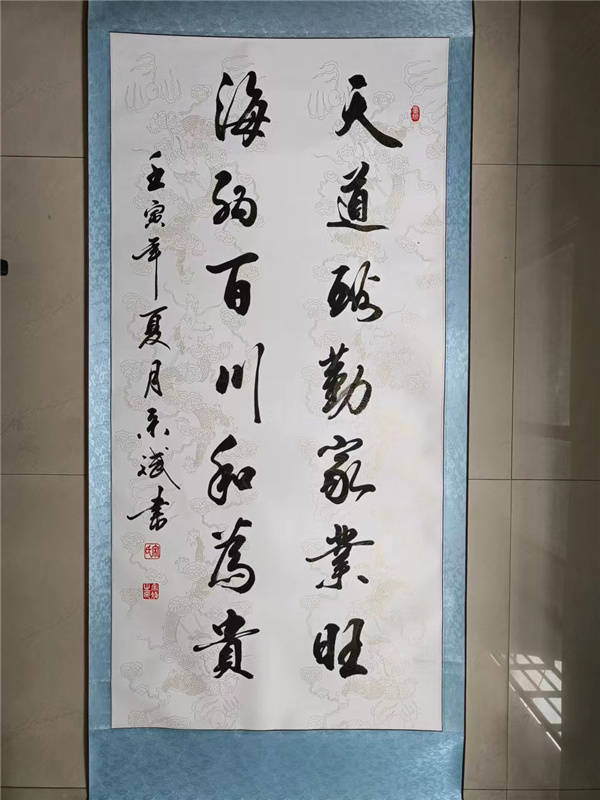 天道酬勤家業旺
海納百川和為貴
壬寅年夏月景斌書